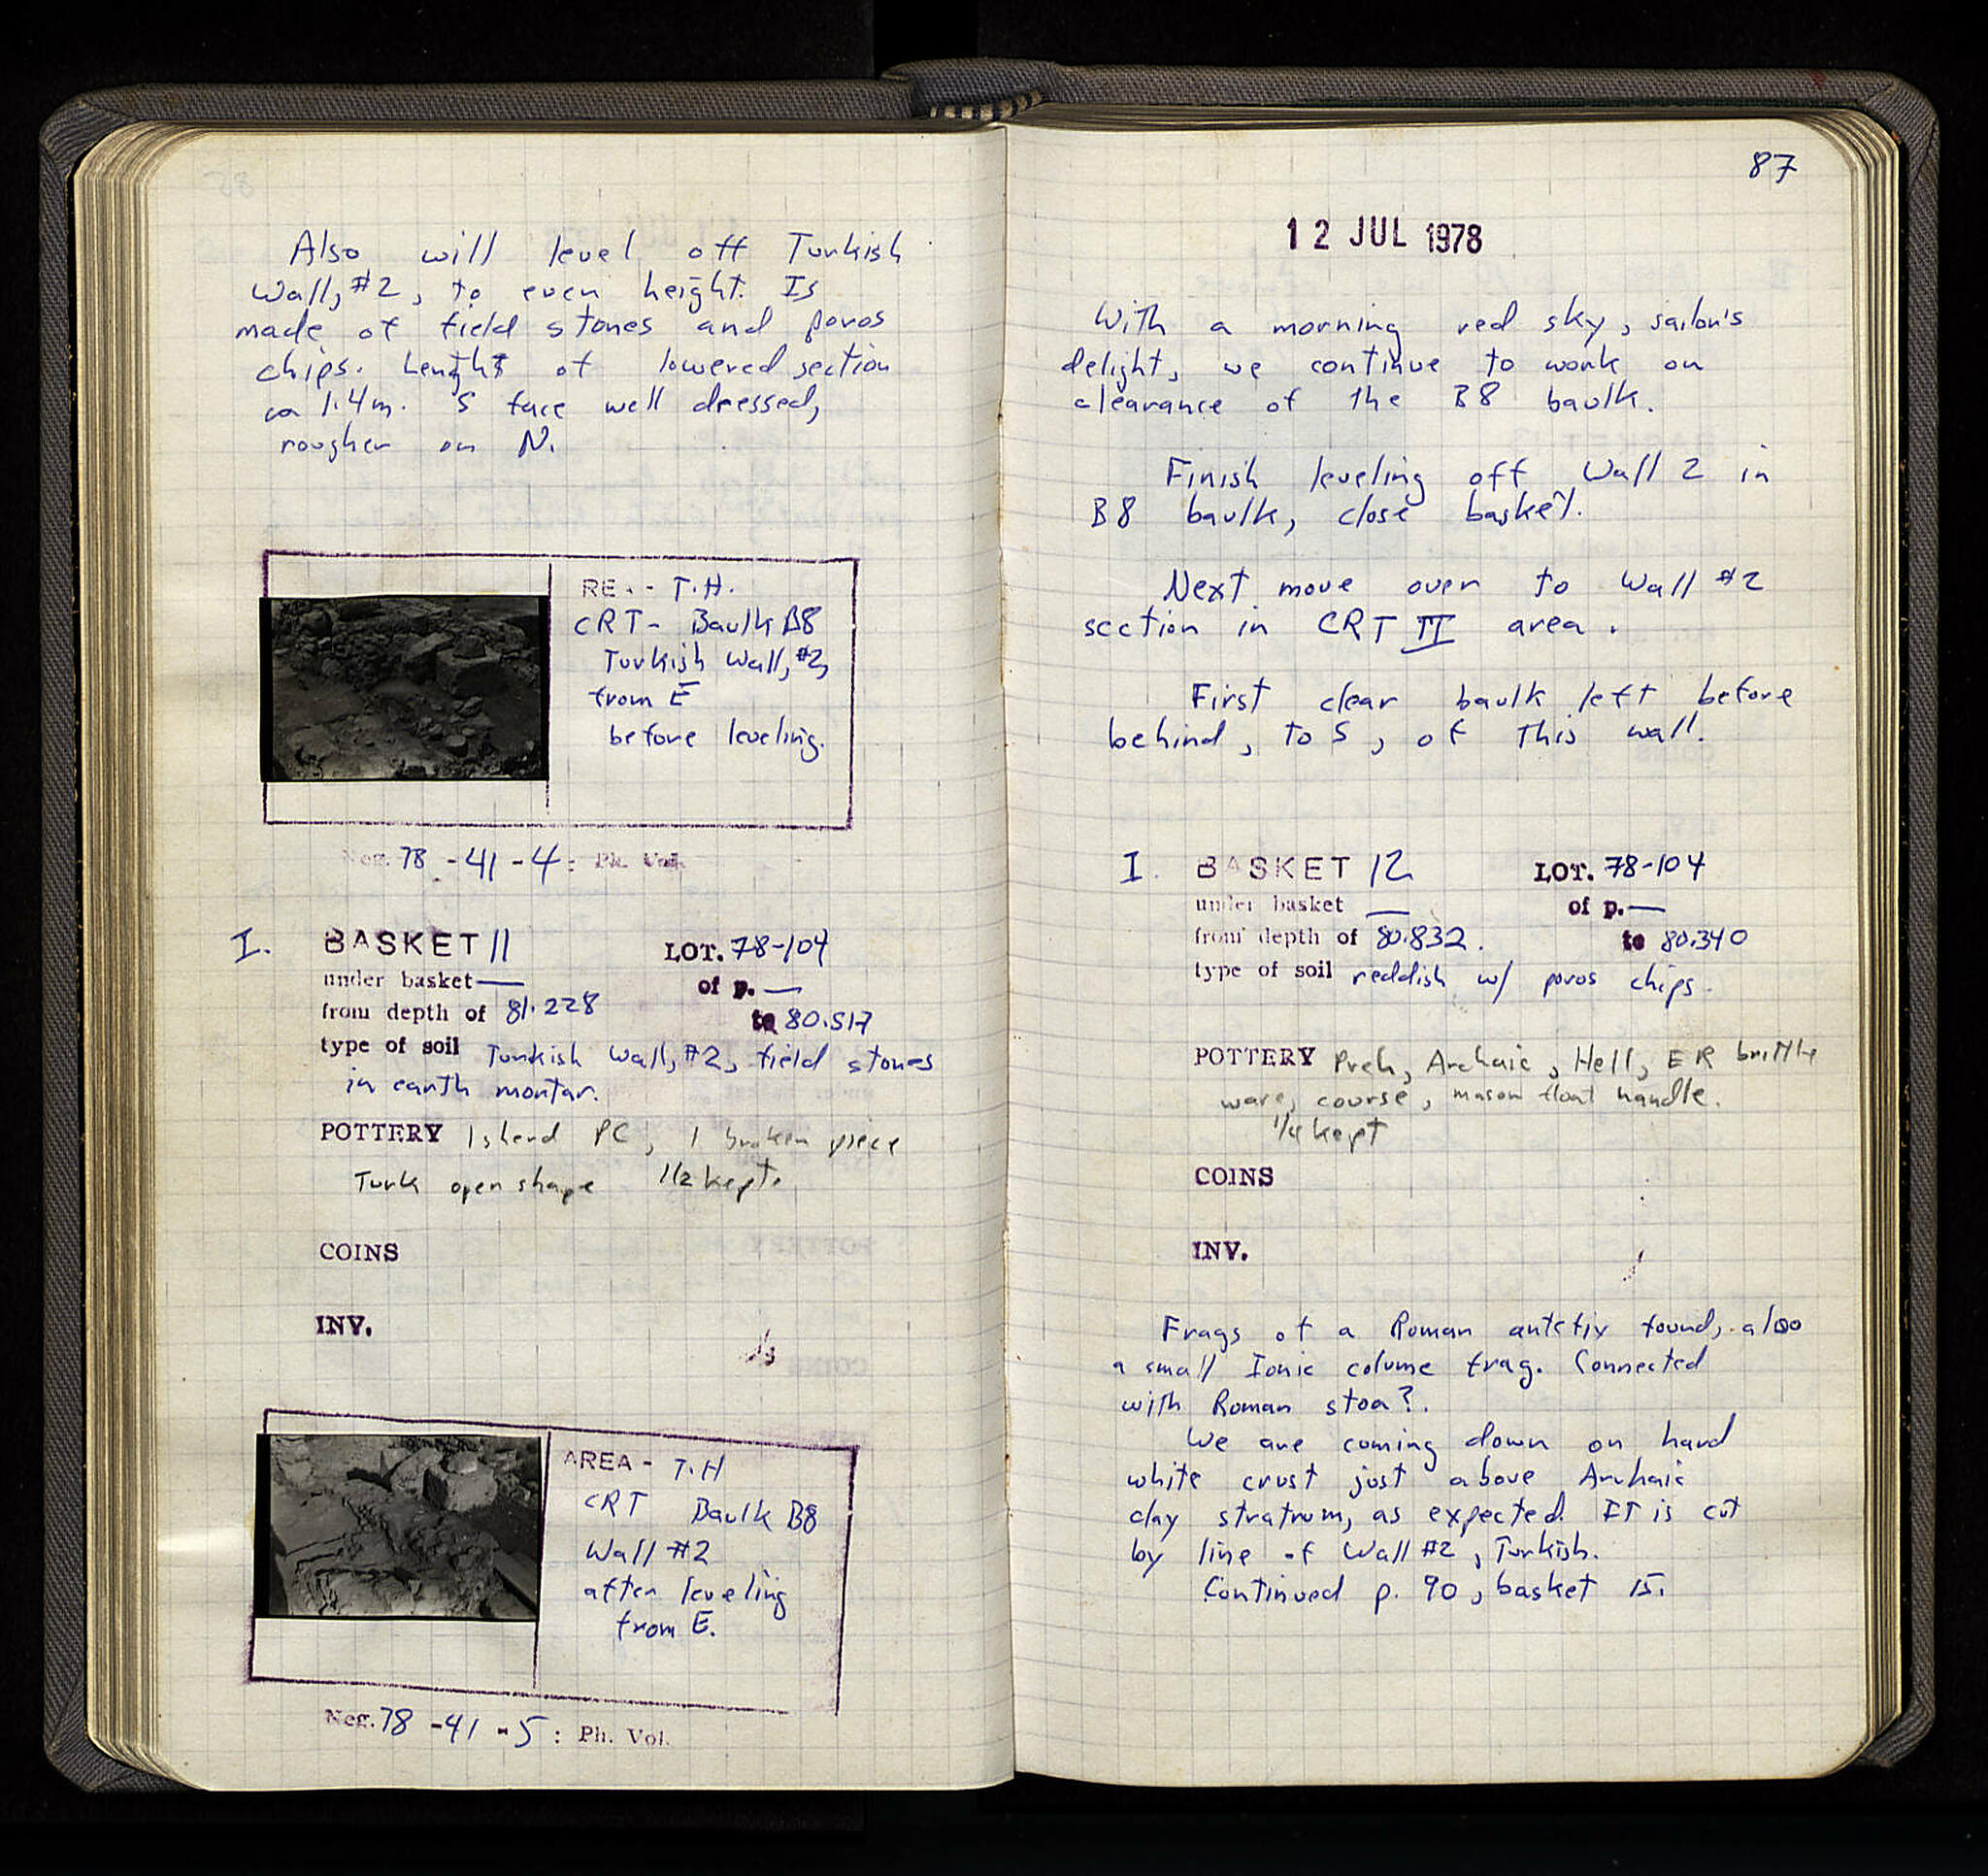 Also will level off Turkish
Wall, #2, to even height. Is
made of field stones and poros
chips. Lenght of lowered section
ca 1.4m. S face well dressed,
rougher on N.
RE - T.H.
CRT - Baulk B8
Turkish Wall, #2,
from E
before leveling.
Neg. 78 - 41 - 4 : Ph. Vol.
I. BASKET 11 LOT. 78-104
under basket — of p. —
from depth of 81.228 to 80.517
type of soil Turkish Wall, #2, field stones
in earth mortar.
POTTERY 1 sherd PC, 1 broken piece
Turk open shape 1/2 kept.
COINS
INV.
AREA - T.H
CRT Baulk B8
Wall #2
after leveling
from E.
Neg. 78 - 41 - 5 : Ph. Vol.
87
12 JUL 1978
With a morning red sky, sailor's
delight, we continue to work on
clearance of the B8 baulk.
Finish leveling off Wall 2 in
B8 baulk, close basket.
Next move over to Wall #2
section in CRT II area.
First clear baulk left before
behind, to S, of this wall.
I. BASKET 12 LOT. 78-104
under basket — of p. —
from depth of 80.832. to 80.340
type of soil reddish w/ poros chips.
POTTERY Preh, Archaic, Hell, ER brittle
ware, course, mason float handle.
1/4 kept
COINS
INV.
Frags of a Roman antefix found, also
a small Ionic colume frag. Connected
with Roman stoa?.
We are coming down on hard
white crust just above Archaic
clay stratum, as expected. It is cut
by line of Wall #2, Turkish.
Continued p. 90, basket 15.